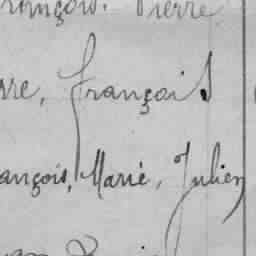 François. Pierre
rre, François
ançois, Marie, Julien